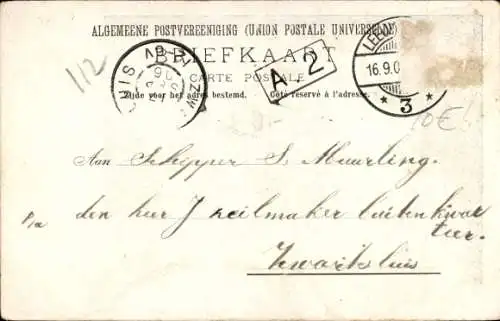 ALGEMEENE POSTVEREENIGING (UNION POSTALE UNIVERSELLE)
BRIEFKAART
CARTE POSTALE
Zijde voor het adres bestemd. Côté réservé à l'adresse.
1/2
A 2
16.9.0
3
Aan Schipper S. Muurling.
P/a den heer J zeilmaker buitenkwar
tier.
Zwartsluis